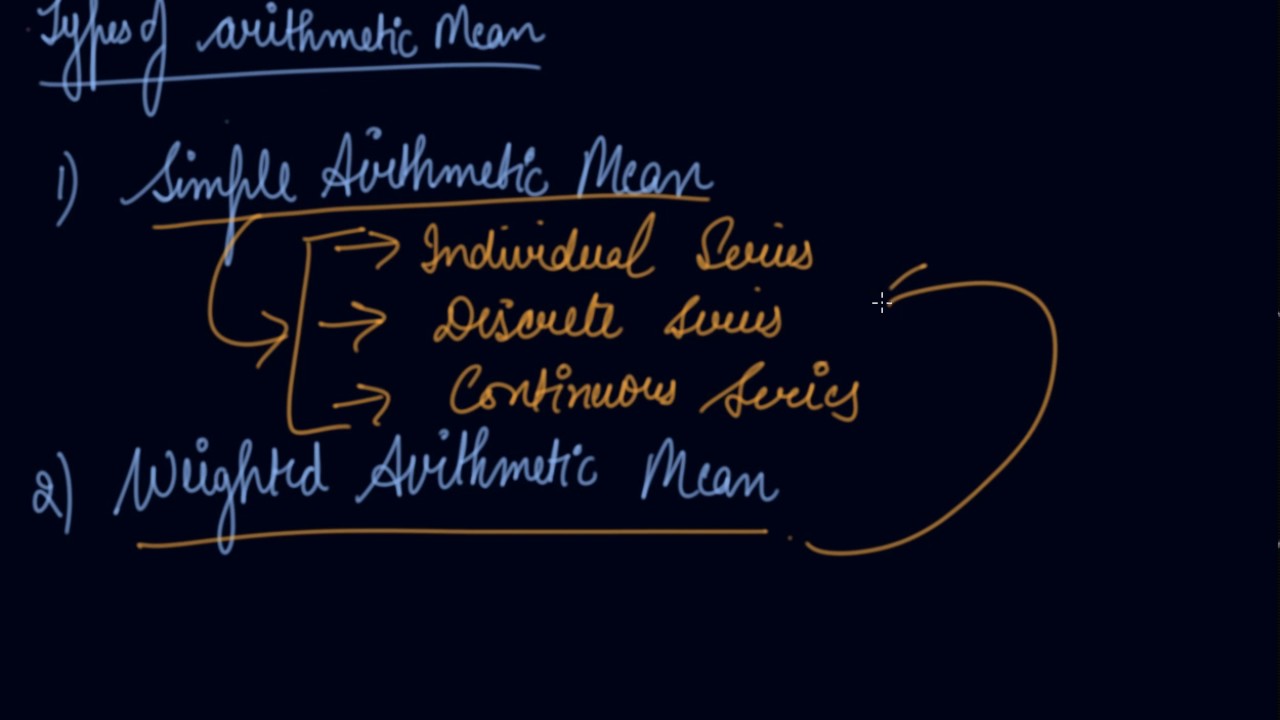 Types of arithmetic Mean
1) Simple Arithmetic Mean
→ Individual Series
→ Discrete Series
→ Continuous Series
2) Weighted Arithmetic Mean